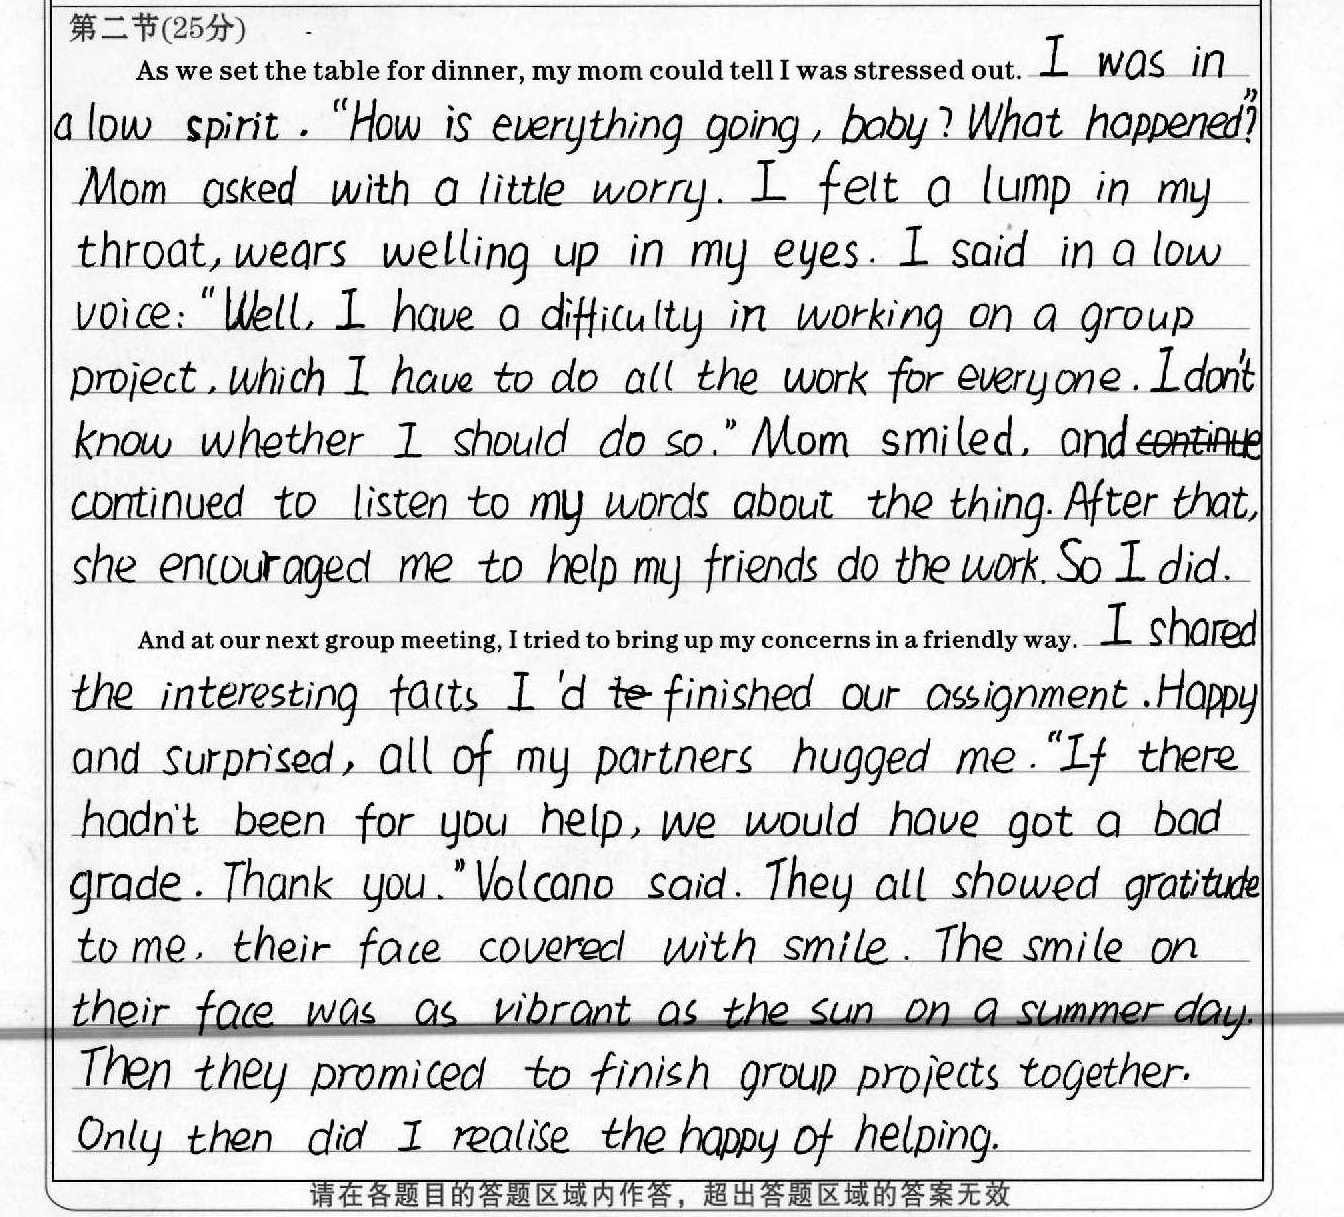 第二节(25分)
As we set the table for dinner, my mom could tell I was stressed out. I was in
a low spirit. "How is everything going, baby? What happened?"
Mom asked with a little worry. I felt a lump in my
throat, wears welling up in my eyes. I said in a low
voice: "Well, I have a difficulty in working on a group
project, which I have to do all the work for everyone. I don't
know whether I should do so." Mom smiled, and continue
continued to listen to my words about the thing. After that,
she encouraged me to help my friends do the work. So I did.
And at our next group meeting, I tried to bring up my concerns in a friendly way. I shared
the interesting facts I'd te finished our assignment. Happy
and surprised, all of my partners hugged me. "If there
hadn't been for you help, we would have got a bad
grade. Thank you." Volcano said. They all showed gratitude
to me, their face covered with smile. The smile on
their face was as vibrant as the sun on a summer day.
Then they promiced to finish group projects together.
Only then did I realise the happy of helping.
请在各题目的答题区域内作答，超出答题区域的答案无效